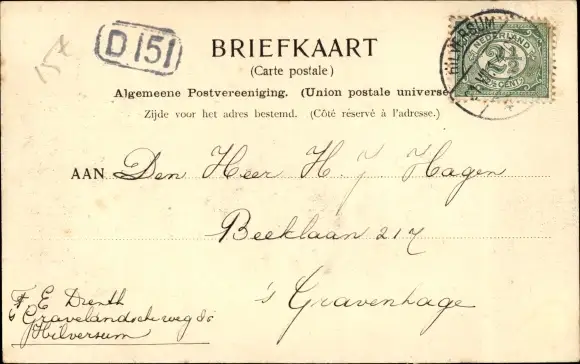 15x
D 151
BRIEFKAART
(Carte postale)
Algemeene Postvereeniging. (Union postale universe
Zijde voor het adres bestemd. (Côté réservé à l'adresse.)
NEDERLAND
2½
CENT
HILVERSUM
AAN Den Heer H. J Hagen
Beeklaan 217
's Gravenhage
F. E Drenth
Gravelandscheweg
Hilversum